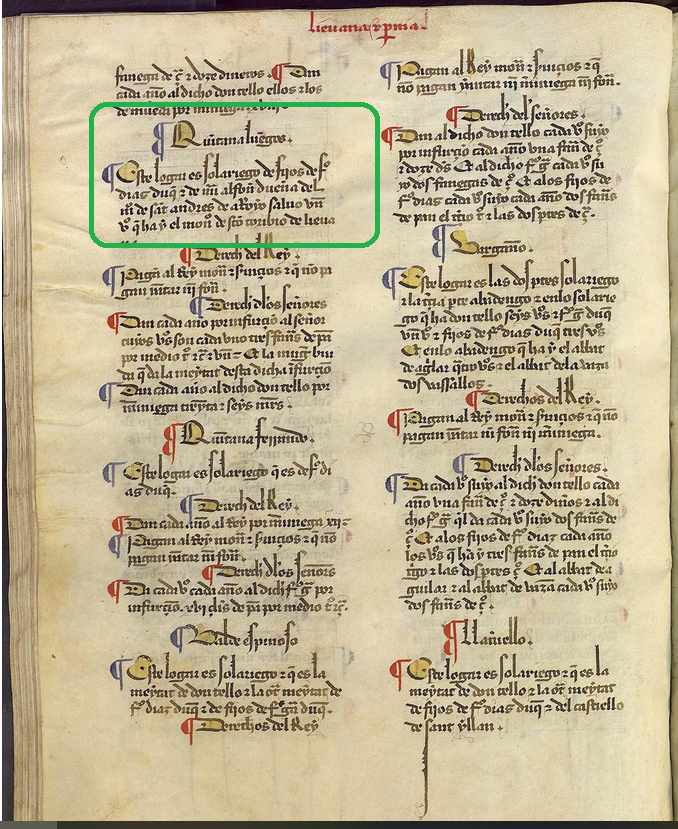 lieuana & pnia.
fanega de ç & doze dineros. ¶ Dan
cada año al dicho don tello ellos & los
de muedi por miniega
¶ Quintana luengos.
¶ Este logar es solariego de fijos de f
dias duq & de mi alfon dueña del
m de sant andres de aroyo saluo vn
v q ha y el mon de sto toribio de lieua
¶ Derech del Rey
¶ Pagan al Rey mon & seruicios & q no pa
gan iantar ni fon.
¶ Derech dlos señores
¶ Dan cada año por infurçio al señor
cuyos vs son cada vno tres fans de pan
por medio t & ç & vn Et la mug biu
da q di la meytat desta dicha infurcio
¶ Dan cada año al dicho don tello por
miniega treyta & seys mrs.
¶ Quintana ferrando.
¶ Este logar es solariego q es de f di
as duq.
¶ Derech del Rey
¶ Dan cada año al Rey por miniega xii
¶ Pagan al Rey mon & seruicios & q no
pagan iantar ni fon.
¶ Derech dlos señores
¶ Da cada v cada año al dich f g por
infurçio. xvi çls de pan por medio t & ç.
¶ Val de espinoso
¶ Este logar es solariego & q es la
meytat de don tello & la ot meytat de
f diaz duq & de fijos de f ga duq.
¶ Derechos del Rey
¶ Pagan al Rey mon & seruicios & q
no pagan iantar ni miniega ni fon.
¶ Derech del señores.
¶ Dan al dicho don tello cada v suyo
por infurçio cada año vna fan de ç
& doze ds & Et al dicho f g cada v su
yo dos fanegas de ç. Et alos fijos de
f dias cada v suyo cada año dos fans
de pan el tio t & las dos ptes de ç.
¶ Barganno.
¶ Este logar es las dos ptes solariego
& la tça pte abadengo & enlo solarie
go q ha don tello seys vs & f g duq
vn v & fijos de f dias duq tres vs
Et enlo abadengo q ha y el abat
de aglar quo vs & el abat de la vanza
dos vasallos.
¶ Derechos del Rey.
¶ Pagan al Rey mon & seruicios & q no
pagan iantar ni fon ni miniega.
¶ Derech dlos señores.
¶ Da cada v suyo al dich don tello cada
año vna fan de ç & doze dinos & al di
cho f g ql da cada v suyo dos fans de
ç Et alos fijos de f diaz cada año
los vs q ha y tres fans de pan el tio
tigo & las dos ptes ç Et al abat de a
guilar & al abat de vanza cada v suyo
dos fans de ç.
¶ Llanuello.
¶ Este logar es solariego & q es la
meytat de don tello & la ot meytat
de fijos de f dias duq & del castiello
de sant yllan.